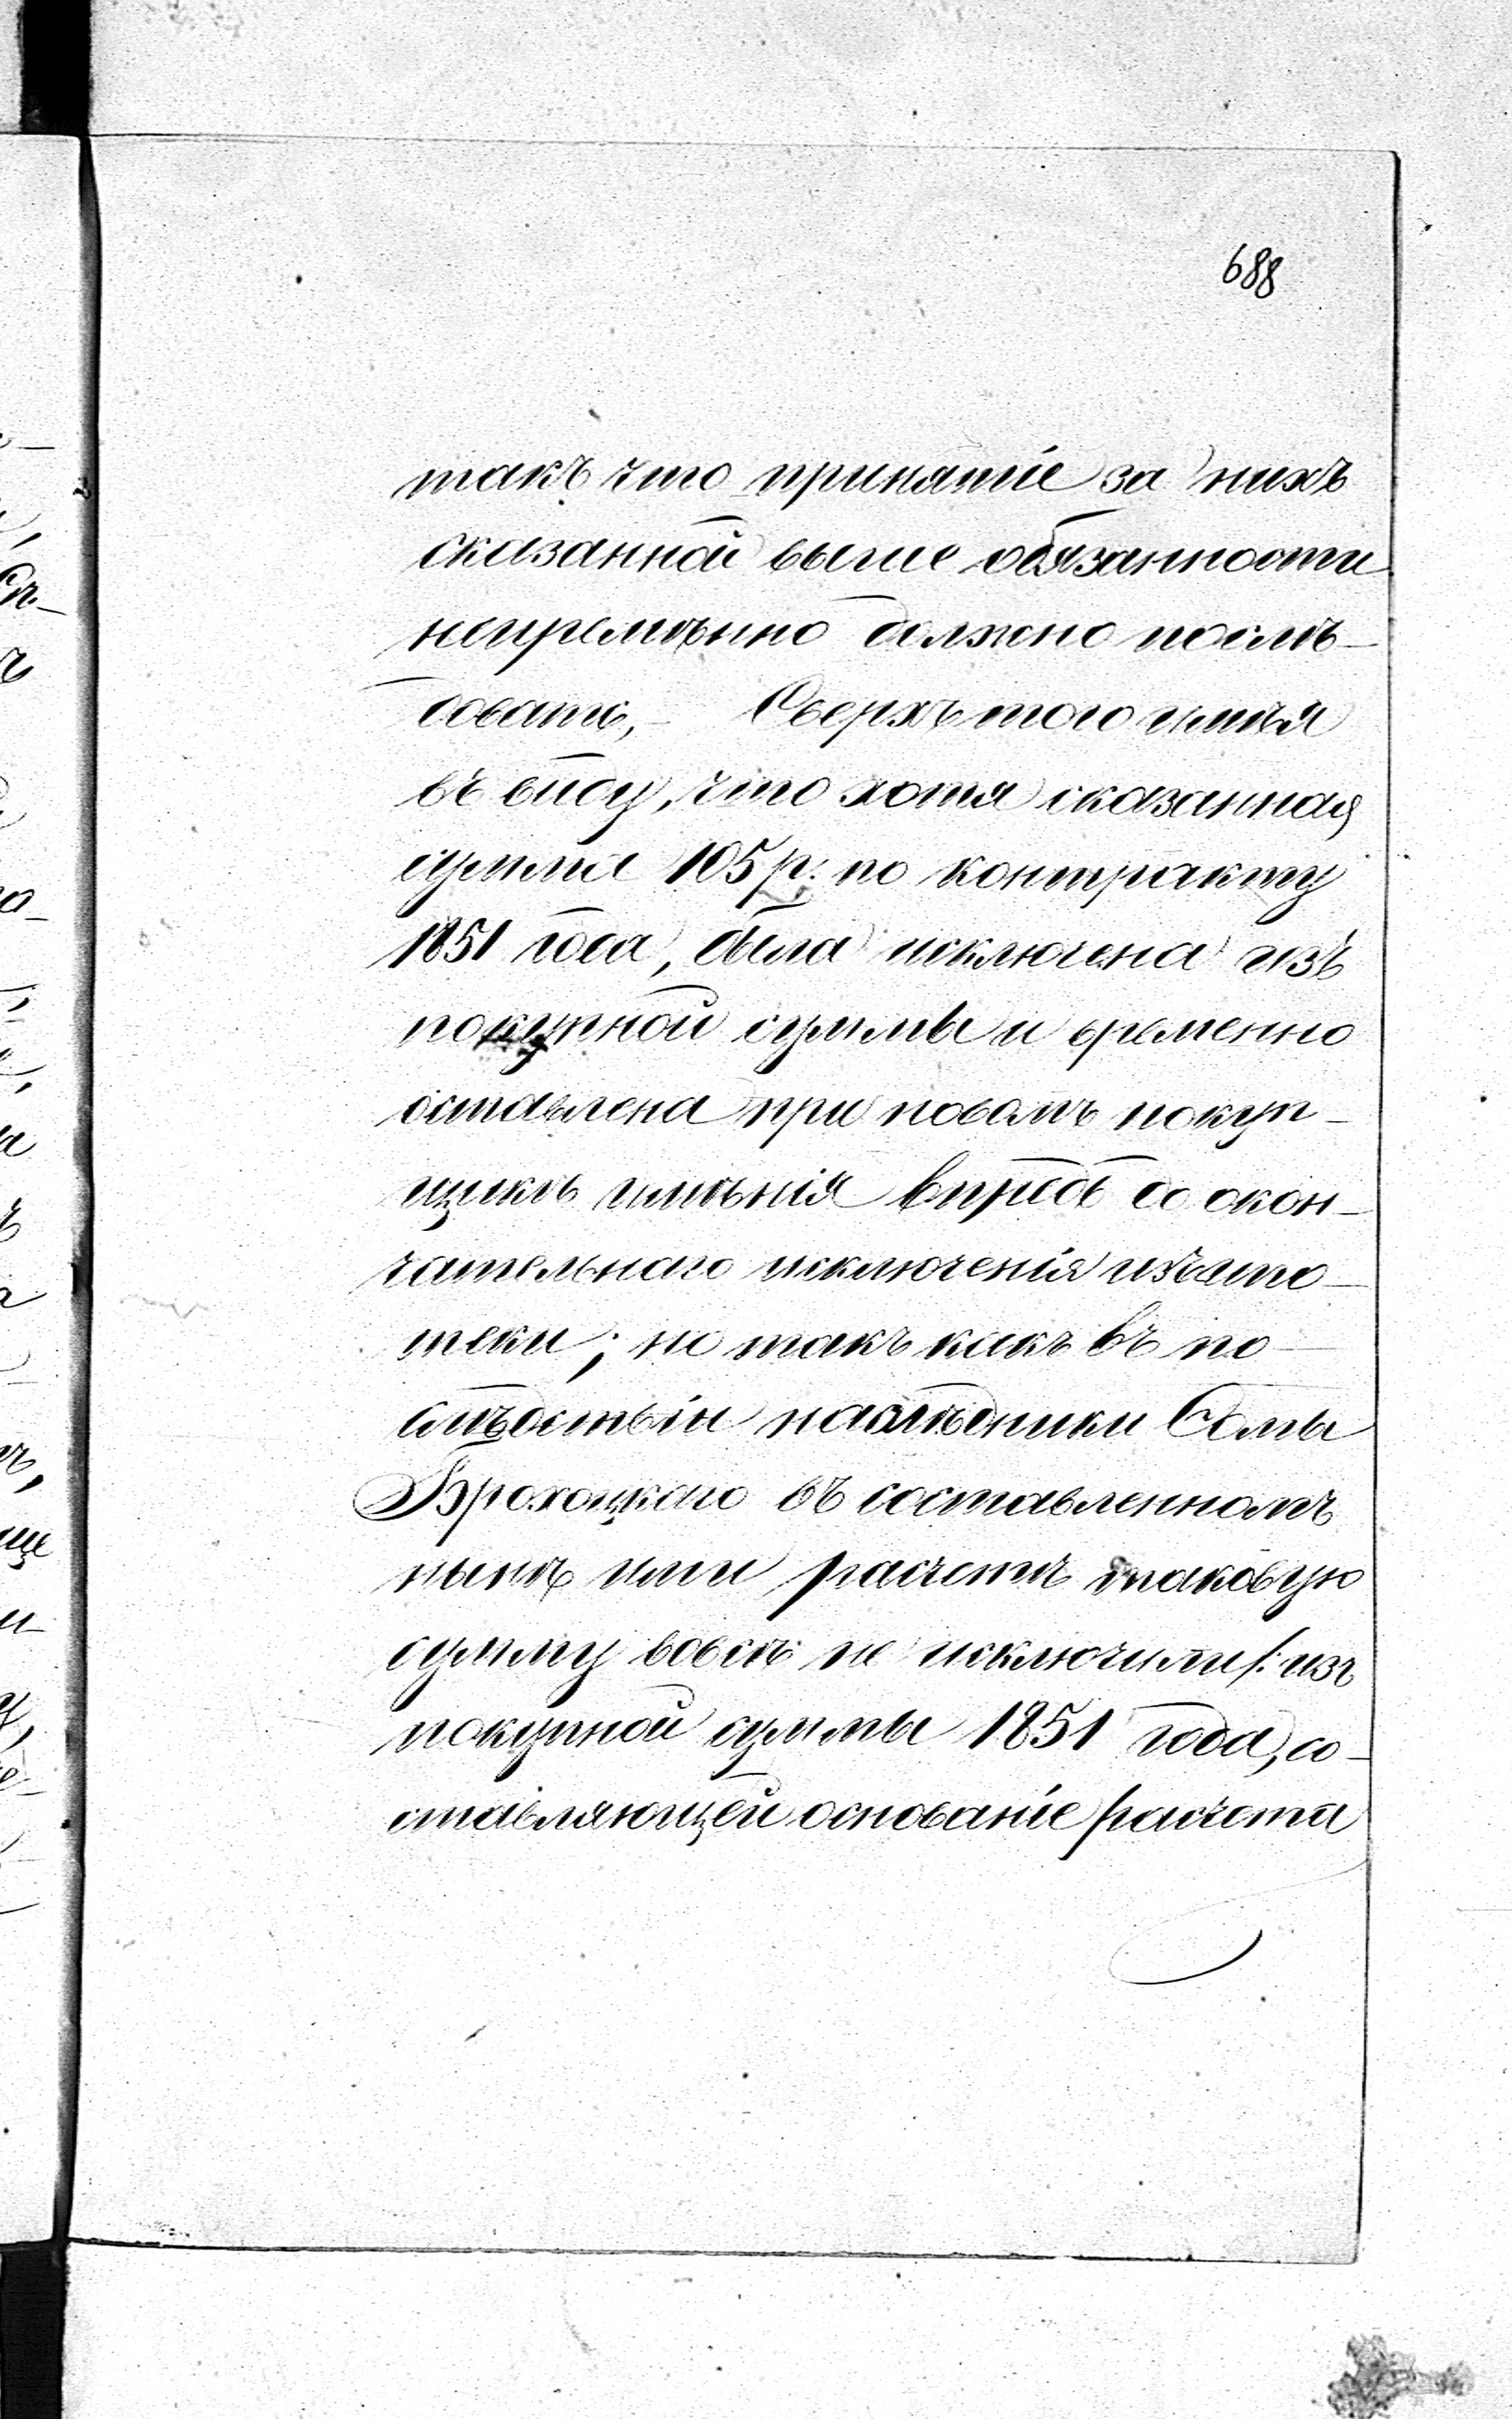 688
такъ что принятіе за нихъ
сказанной выше обязанности
непремѣнно должно послѣ-
довать, - Сверхъ того имѣя
въ виду, что хотя сказанная
сумма 105 р: по контракту
1851 года, была исключена изъ
покупной суммы и временно
оставлена при новомъ покуп-
щикѣ имѣнія впредь до окон-
чательнаго исключенія изъ ипо-
теки; но такъ какъ въ по-
слѣдствіи наслѣдники
Брохоцкаго въ составленномъ
нынѣ ими расчетѣ таковую
сумму вовсе не исключили /: изъ
покупной суммы 1851 года, со-
ставляющей основаніе расчета